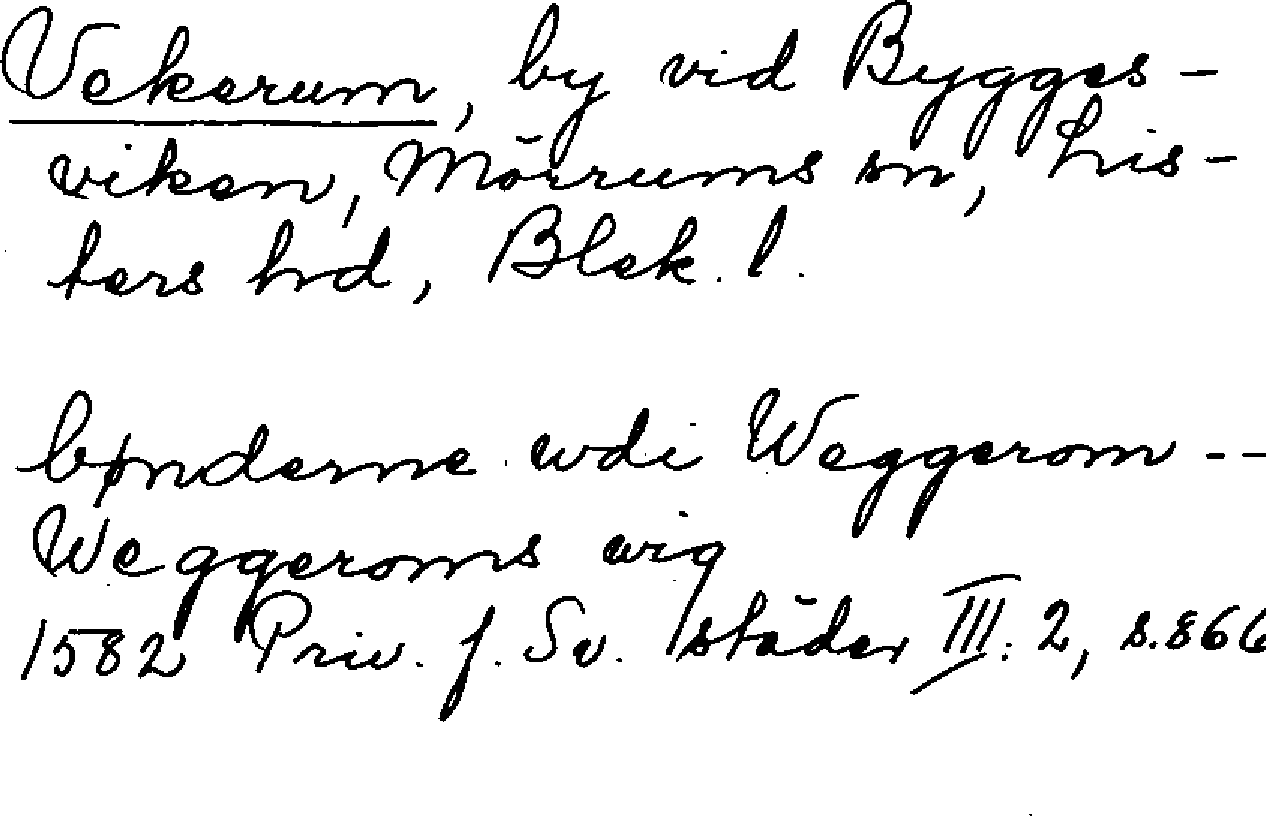 Vekerum, by vid Bygges-
viken, Mörrums sn, Lis-
ters hd, Blek. l.
bønderne wdi Weggerom --
Weggeroms wig
1582 Priv. f. Sv. städer III: 2, s. 866